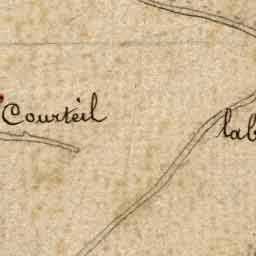 Courteil
lab